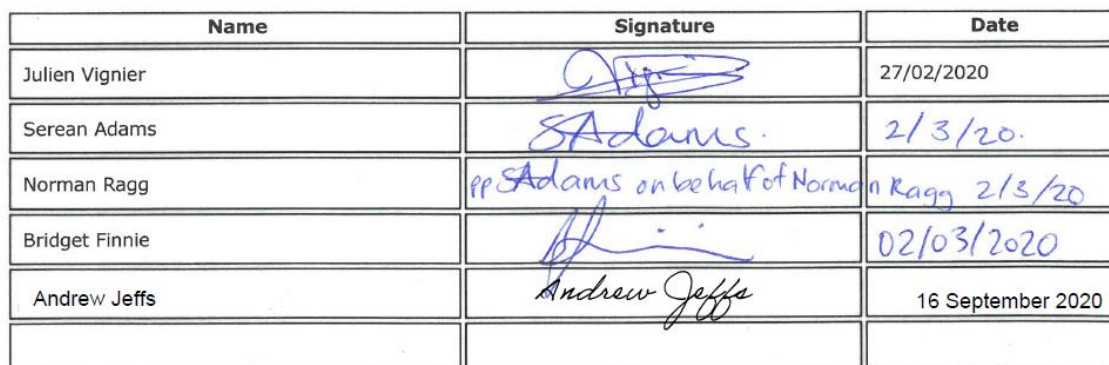 Name Signature Date
Julien Vignier Vignier 27/02/2020
Serean Adams SAdams. 2/3/20.
Norman Ragg pp SAdams on behalf of Norman Ragg 2/3/20
Bridget Finnie 02/03/2020
Andrew Jeffs Andrew Jeffs 16 September 2020